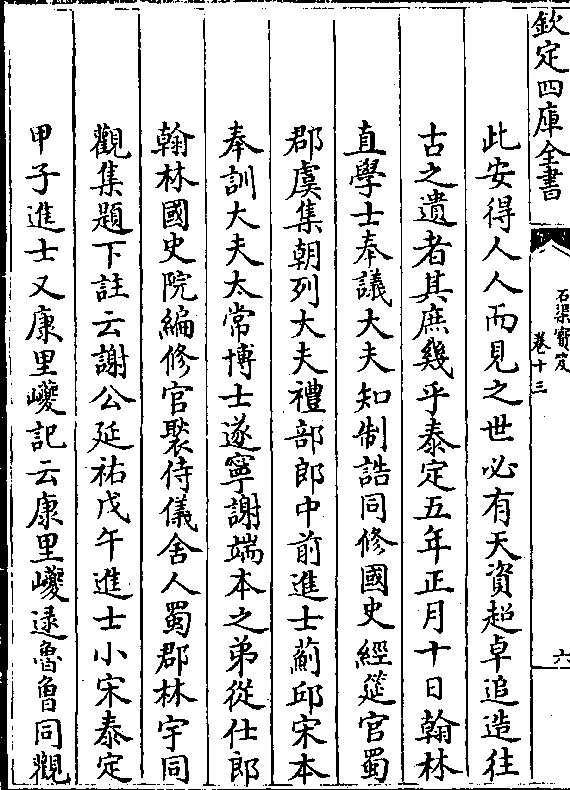 欽定四庫全書
石渠寶笈
卷十三
六
此安得人人而見之世必有天資超卓追造往
古之遺者其庶幾乎泰定五年正月十日翰林
直學士奉議大夫知制誥同修國史經筵官蜀
郡虞集朝列大夫禮部郎中前進士薊邱宋本
奉訓大夫太常博士遂寧謝端本之弟從仕郎
翰林國史院編修官褧侍儀舍人蜀郡林宇同
觀集題下註云謝公延祐戊午進士小宋泰定
甲子進士又康里巙記云康里巙逯魯曾同觀